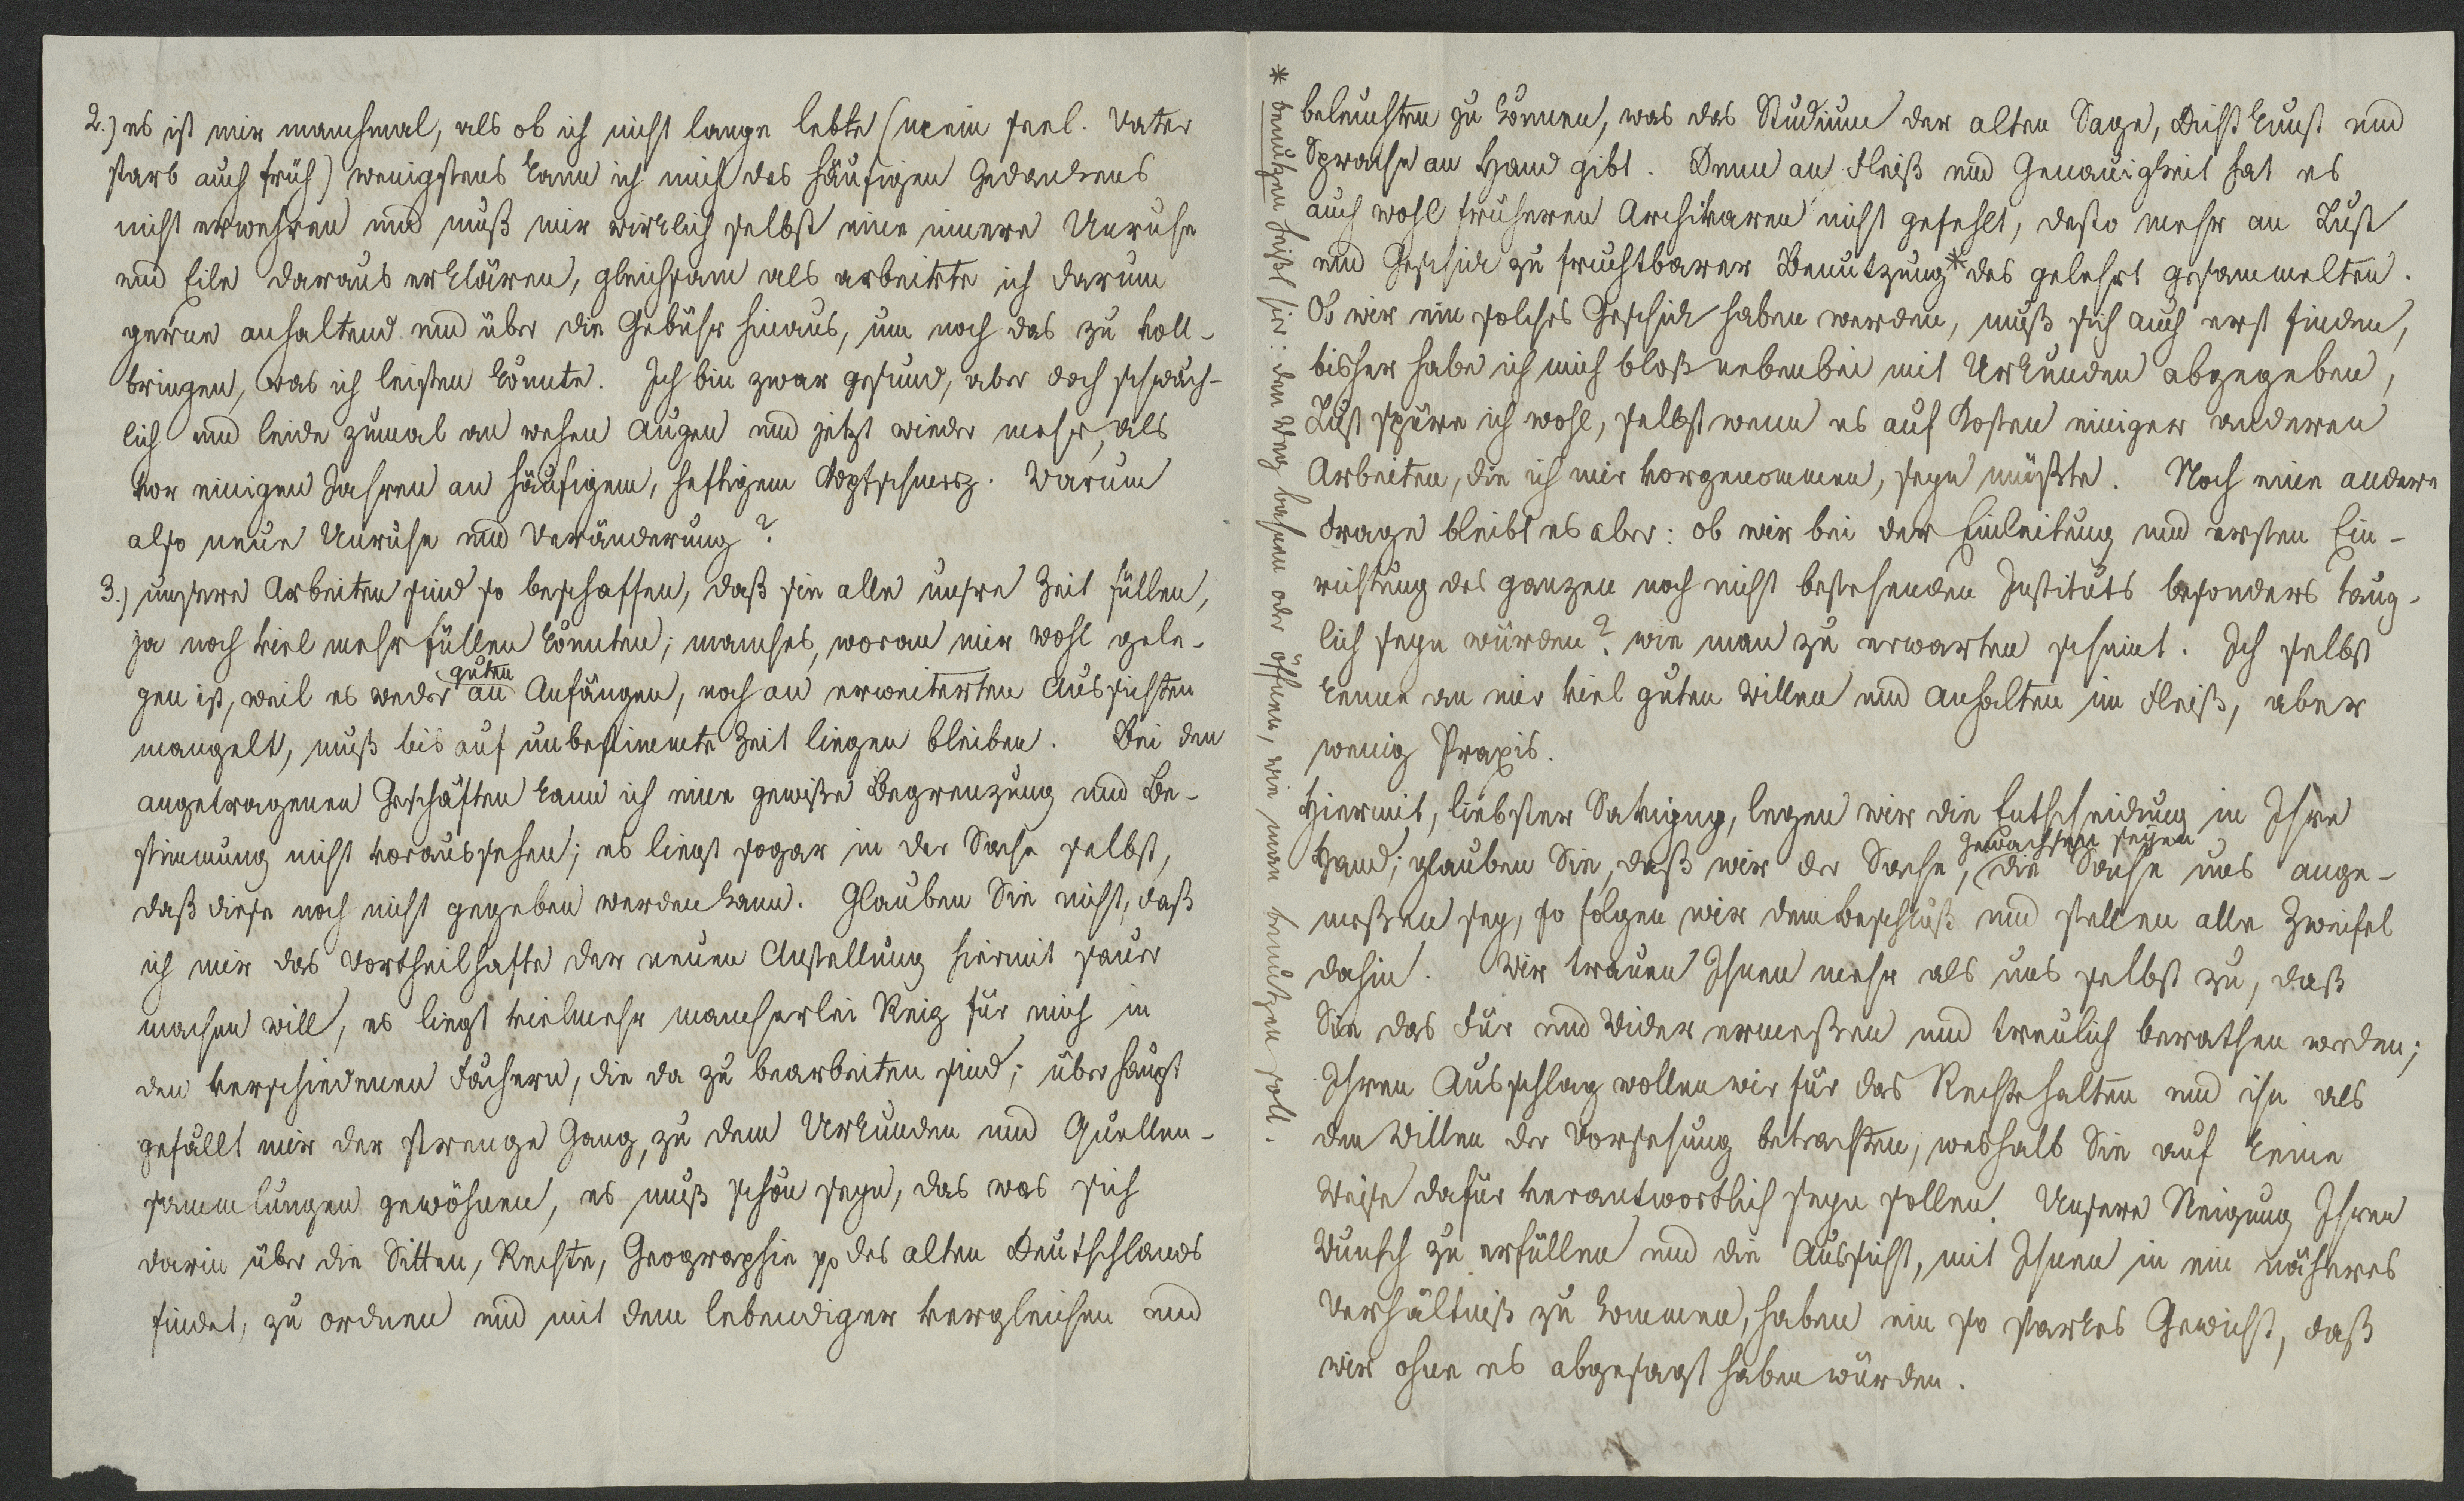 2.) es ist mir manchmal, als ob ich nicht lange lebte (mein seel. Vater
starb auch früh) wenigstens kann ich mich des häufigen Gedankens
nicht erwehren und muß mir wirklich selbst eine innere Unruhe
und Eile daraus erklären, gleichsam als arbeitete ich darum
gerne anhaltend und über die Gebühr hinaus, um noch das zu voll-
bringen, was ich leisten könnte. Ich bin zwar gesund, aber doch schwäch-
lich und leide zumal an wehen Augen und jetzt wieder mehr, als
vor einigen Jahren an häufigem, heftigem Kopfschmerz. Warum
also neue Unruhe und Veränderung?
3.) unsere Arbeiten sind so beschaffen, daß sie alle unsre Zeit füllen,
ja noch viel mehr füllen könnten; manches, woran mir wohl gele-
guten
gen ist, weil es weder an Anfängen, noch an erweiterten Aussichten
mangelt, muß bis auf unbestimmte Zeit liegen bleiben. Bei den
angetragenen Geschäften kann ich eine gewiße Begrenzung und Be-
stimmung nicht voraussehen; es liegt sogar in der Sache selbst,
daß diese noch nicht gegeben werden kann. Glauben Sie nicht, daß
ich mir das Vortheilhafte der neuen Anstellung hiermit sauer
machen will, es liegt vielmehr mancherlei Reiz für mich in
den verschiedenen Fächern, die da zu bearbeiten sind; überhaupt
gefällt mir der strenge Gang, zu dem Urkunden und Quellen-
sammlungen gewöhnen, es muß schön seyn, das was sich
darin über die Sitten, Rechte, Geographie pp des alten Deutschlands
findet, zu ordnen und mit dem lebendiger vergleichen und
beleuchten zu können, was das Studium der alten Sage, Dichtkunst und
Sprache an Hand gibt. Denn an Fleiß und Genauigkeit hat es
auch wohl früheren Archivaren nicht gefehlt, desto mehr an Lust
und Geschick zu fruchtbarer Benutzung* des gelehrt gesammelten.
Ob wir ein solches Geschick haben werden, muß sich auch erst finden,
bisher habe ich mich bloß nebenbei mit Urkunden abgegeben,
Lust spüre ich wohl, selbst wenn es auf Kosten einiger anderen
Arbeiten, die ich mir vorgenommen, seyn müßte. Noch eine andere
Frage bleibt es aber: ob wir bei der Einleitung und ersten Ein-
richtung des ganzen noch nicht bestehenden Instituts besonders taug-
lich seyn würden? wie man zu erwarten scheint. Ich selbst
kenne an mir viel guten Willen und Anhalten im Fleiß, aber
wenig Praxis.
Hiermit, liebster Savigny, legen wir die Entscheidung in Ihre
gewachsen seyen
Hand; glauben Sie, daß wir der Sache, die Sache uns ange-
meßen sey, so folgen wir dem Beschluß und stellen alle Zweifel
dahin. Wir trauen Ihnen mehr als uns selbst zu, daß
Sie das Für und Wider ermeßen und treulich berathen werden;
Ihren Ausschlag wollen wir für das Rechte halten und ihn als
den Willen der Vorsehung betrachten, weshalb Sie auf keine
Weise dafür verantwortlich seyn sollen. Unsere Neigung Ihren
Wunsch zu erfüllen und die Aussicht, mit Ihnen in ein näheres
Verhältniß zu kommen, haben ein so starkes Gewicht, daß
wir ohne es abgesagt haben würden.
* benutzen heißt hier: den Weg bahnen oder öffnen, wie man benutzen soll.